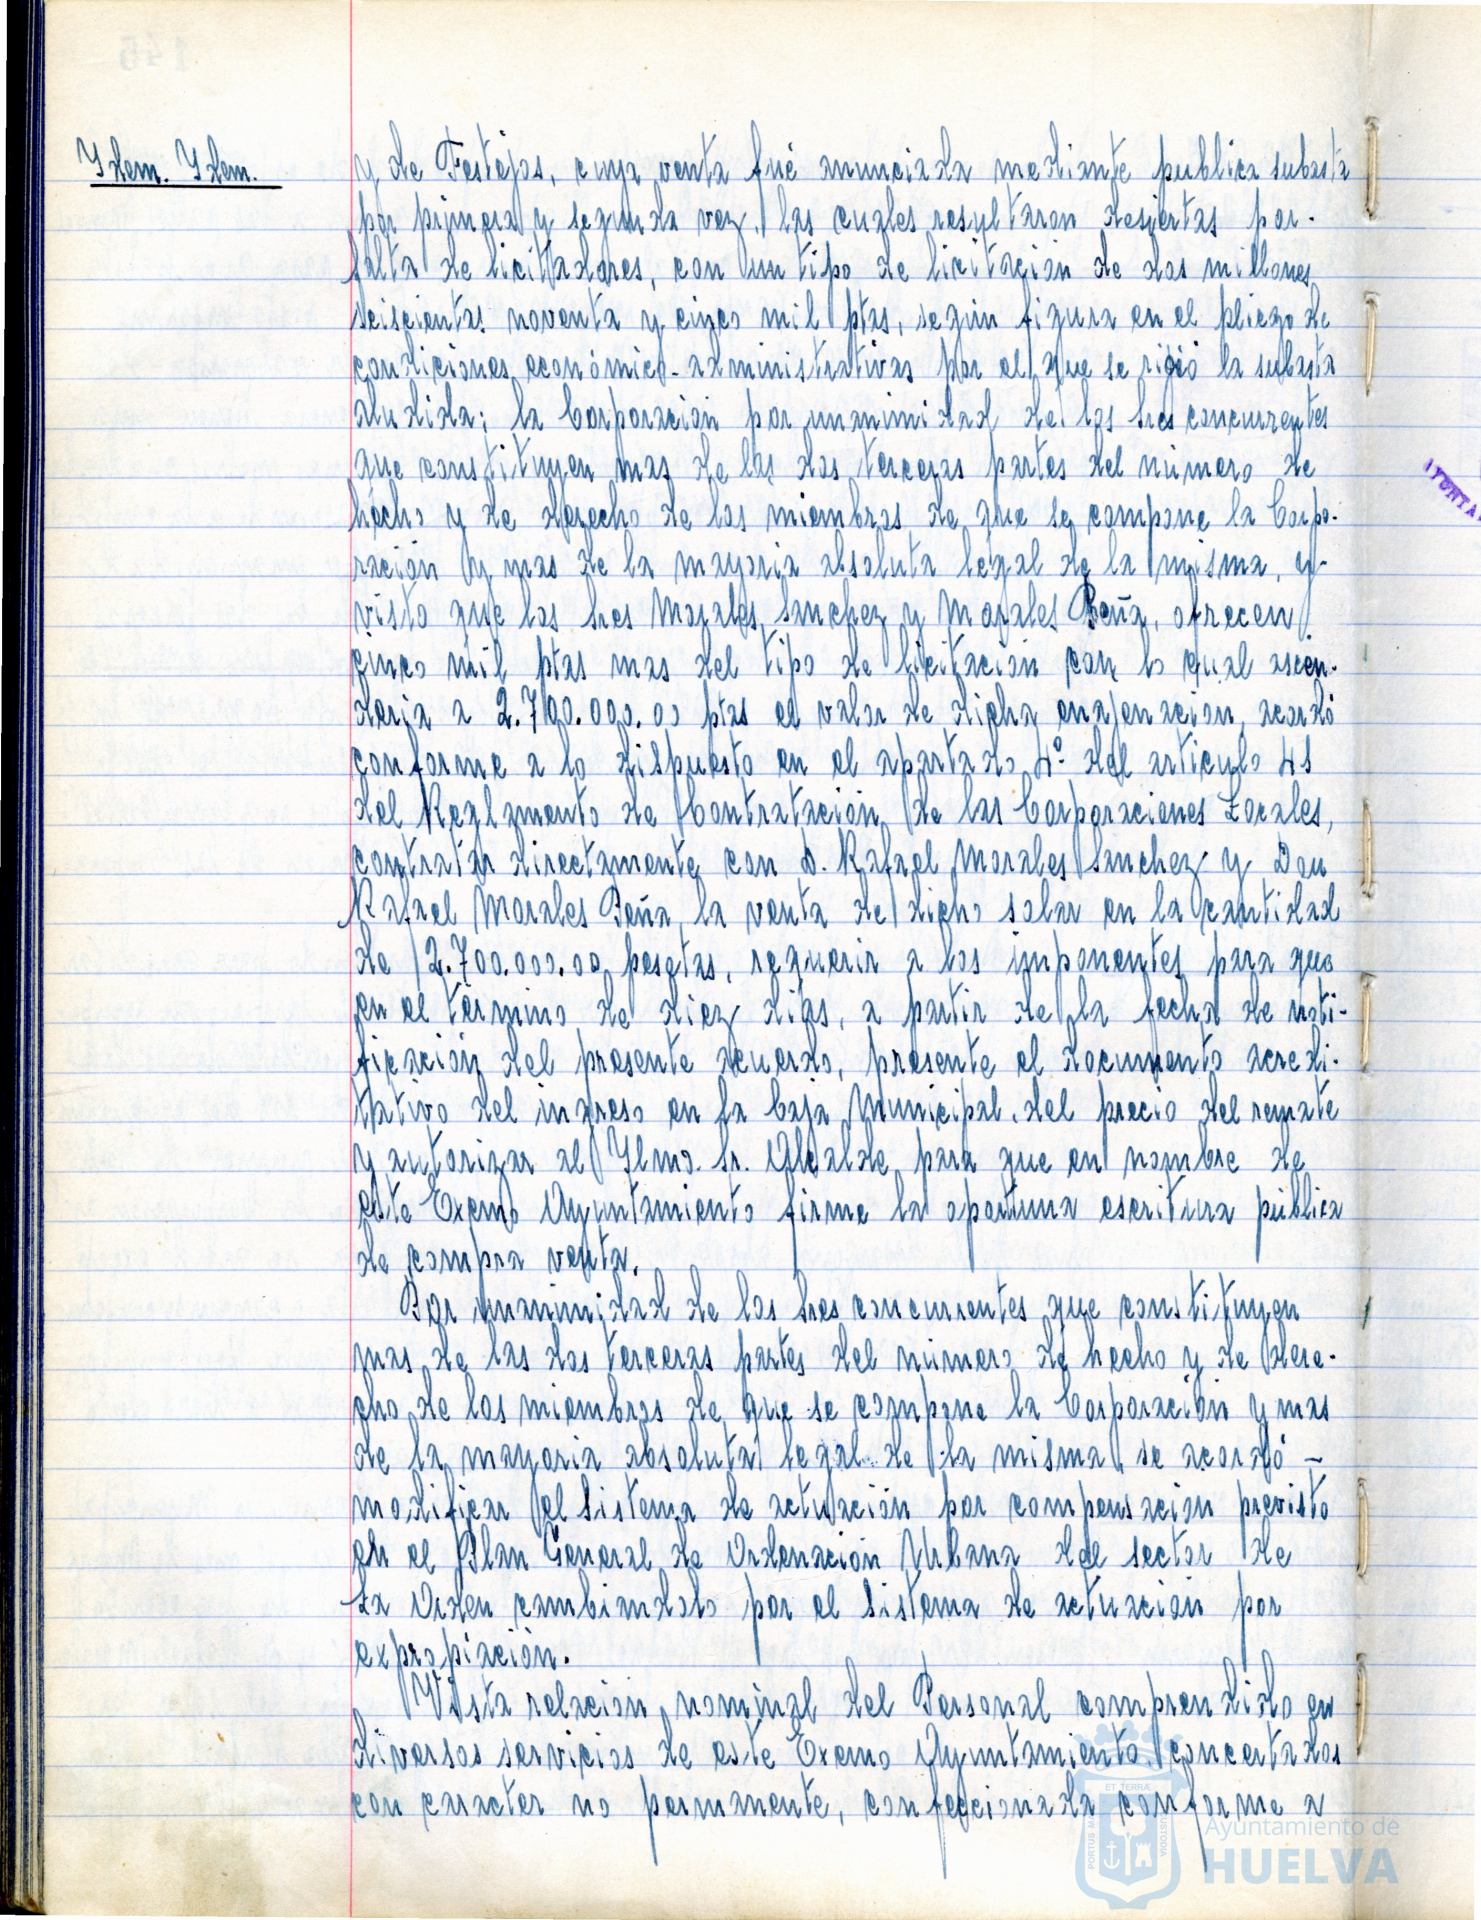 Ydem. Ydem.
y de Festejos, cuya venta fué anunciada mediante publica subasta
por primera y segunda vez, las cuales resultaron desiertas por
falta de licitadores, con un tipo de licitación de dos millones
seiscientas noventa y cinco mil ptas, según figura en el pliego de
condiciones económico-administrativas por el que se rigió la subasta
aludida; la Corporación por unanimidad de los sres concurrentes
que constituyen mas de las dos terceras partes del número de
hecho y de derecho de los miembros de que se compone la Corpo-
ración y mas de la mayoria absoluta legal de la misma, y
visto que los sres Morales Sanchez y Morales Peña, ofrecen
cinco mil ptas mas del tipo de licitación con lo cual ascen-
deria a 2.700.000.00 ptas el valor de dicha enajenacion, acordó
conforme a lo dispuesto en el apartado 4º del articulo 41
del Reglamento de Contratación de las Corporaciones Locales,
contratar directamente con D. Rafael Morales Sanchez y Don
Rafael Morales Peña, la venta de dicho solar en la cantidad
de 2.700.000.00 pesetas, requerir a los imponentes para que
en el término de diez dias, a partir de la fecha de noti-
ficación del presente acuerdo, presente el documento acredi-
tativo del ingreso en la Caja Municipal, del precio del remate
y autorizar al Ylmo. Sr. Alcalde para que en nombre de
este Excmo Ayuntamiento firme la oportuna escritura pública
de compra venta.
Por unanimidad de los sres concurrentes que constituyen
mas de las dos terceras partes del número de hecho y de dere-
cho de los miembros de que se compone la Corporación y mas
de la mayoria absoluta legal de la misma, se acordó -
modificar el sistema de actuación por compensación previsto
en el Plan General de Ordenación Urbana del sector de
La Orden cambiandolo por el sistema de actuación por
expropiación.
Vista relación nominal del Personal comprendido en
diversos servicios de este Excmo Ayuntamiento concertados
con caracter no permanente, confeccionada conforme a
ET TERRÆ
PORTUS M
CUSTODIA
Ayuntamiento de
HUELVA